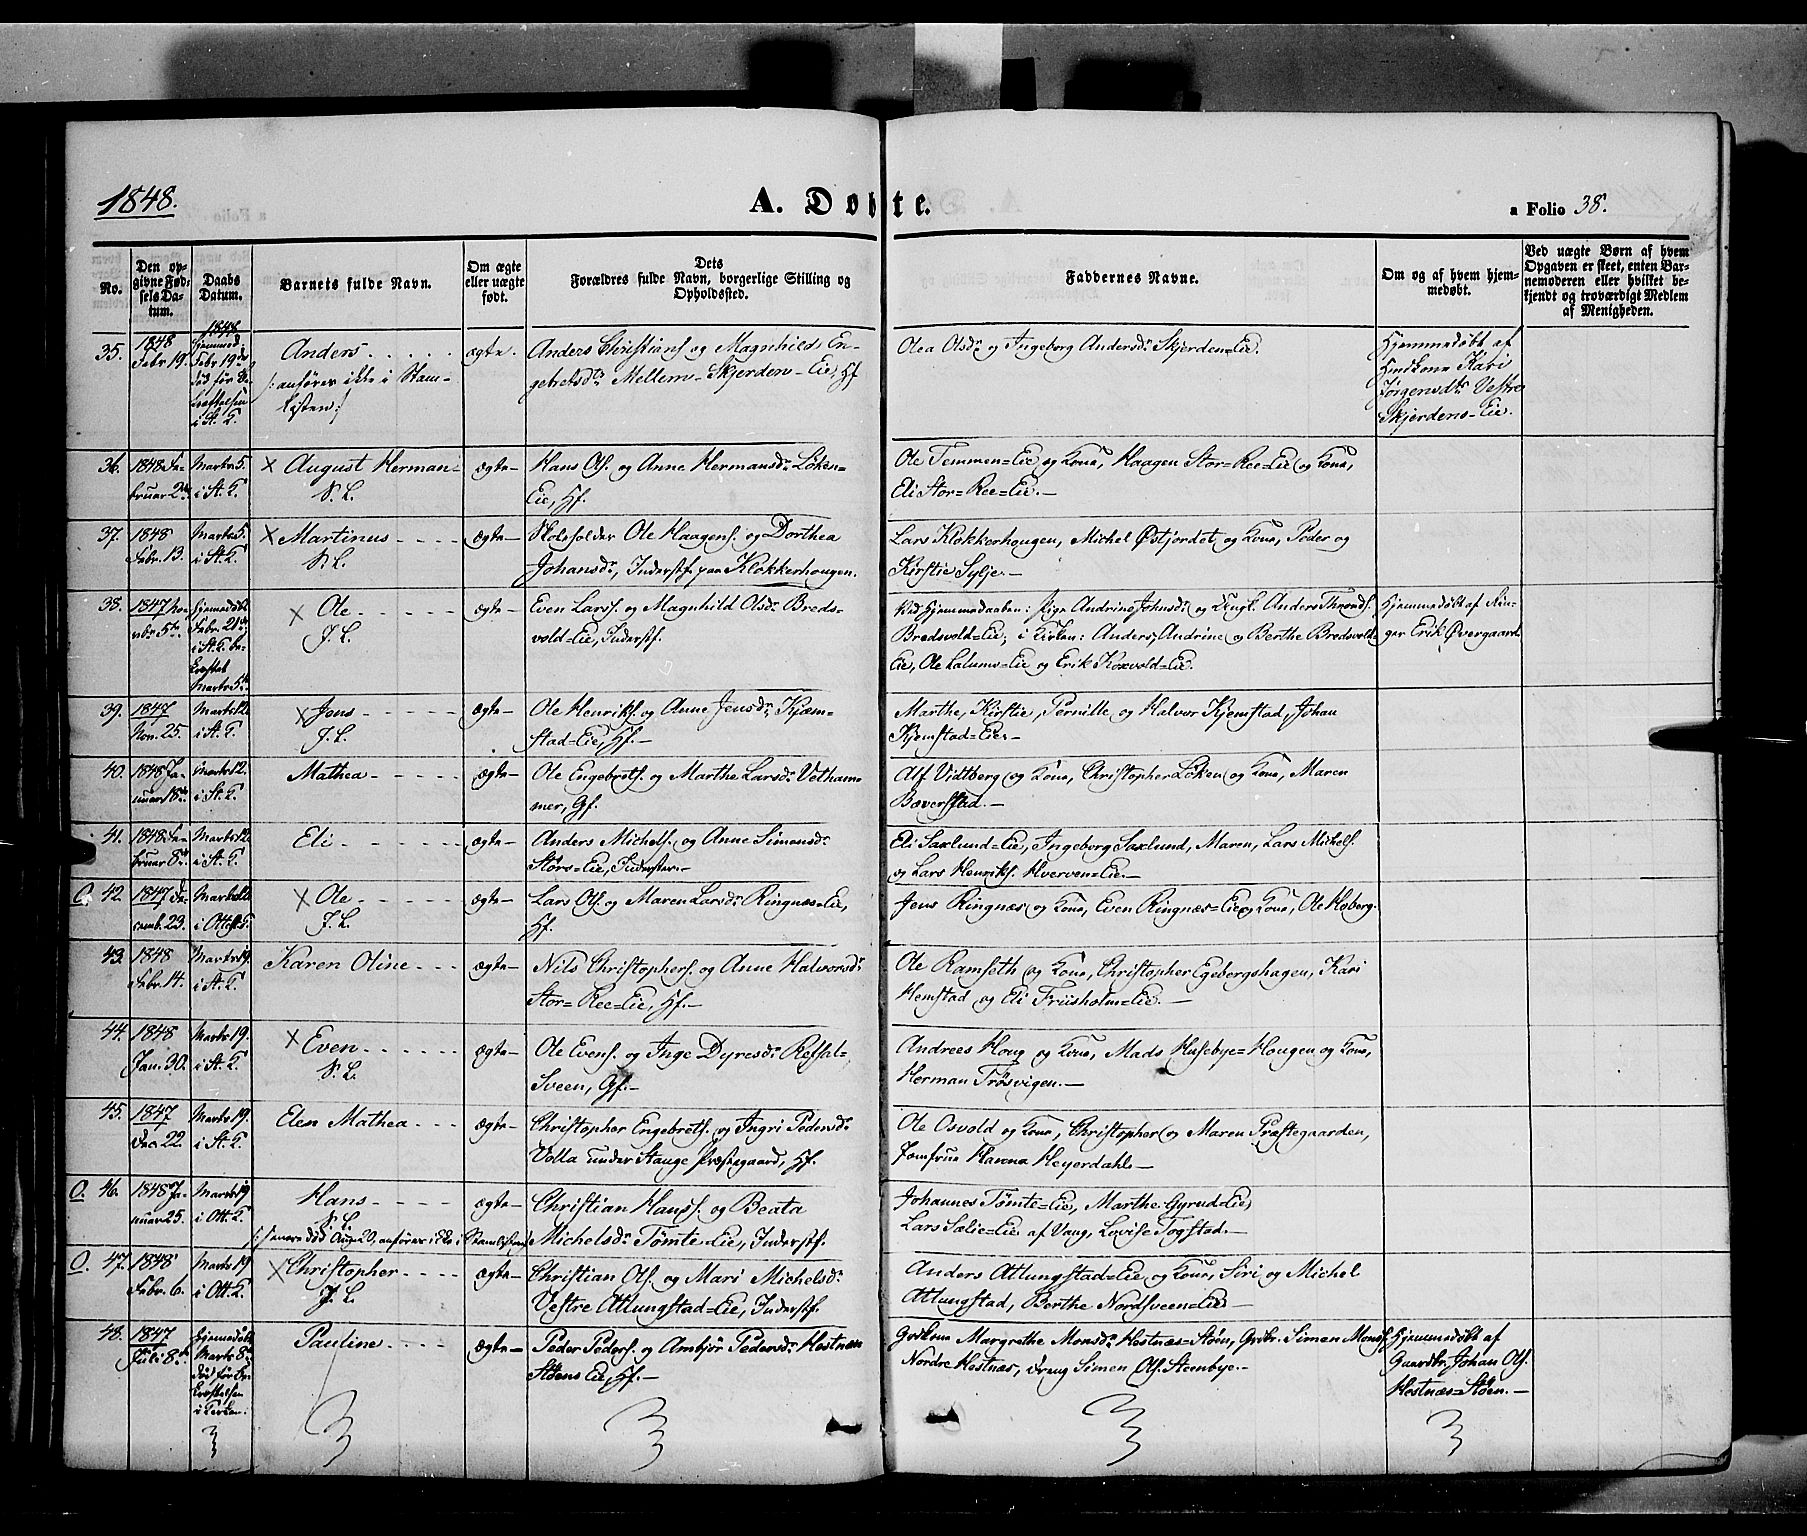 1848.
A. Døbte.
a Folio 38.
No.
Den op-
givne Fød-
sels Da-
tum.
Daabs
Datum.
Barnets fulde Navn.
Om ægte
eller uægte
født.
Dets
Forældres fulde Navn, borgerlige Stilling og
Opholdssted.
Faddernes Navne.
Om og af hvem hjem-
medøbt.
Ved uægte Børn af hvem
Opgaven er skeet, enten Bar-
nemoderen eller hvilket be-
kjendt og troværdigt Medlem
af Menigheden.
35.
1848
Febr 19.
1848
Hjemmed.
Febr 19de
død før Be-
kræftelsen
i St. K.
Anders
/: anføres ikke i Stam-
listen :/
ægte.
Anders Christians. og Magnhild En-
gebretsdr. Mellem-Skjerden-Eie, Hf
Olea Olsdr. og Ingeborg Andersdr. Skjerden=Eie.
Hjemmedøbt af
Huskone Kari
Jørgensdtr. Vestre
Skjerdens-Eie.
36.
1848 Fe-
bruar 2den
Marts 5.
i St. K.
X August Herman-
N. L.
ægte-
Hans Ols. og Anne Hermansdr. Løken-
Eie, Hf.
Ole Temmen=Eie og Kone, Haagen Stor=Ree=Eie og Kone,
Eli Stor=Ree=Eie.-
37.
1848
Febr. 13.
Marts 5.
i St. K.
X Martinus
N. L.
ægte-
Skoleholder Ole Haagens. og Dorthea
Johansdr., Inderst. paa Klokkerhougen.
Lars Klokkerhougen, Michel Østjordet og Kone, Peder og
Kirstie Sylje.-
38.
1847 No-
vbr. 5te
Hjemmedøbt
Febr. 21de
i St. K. be-
kræftet
Marts 5te
X Ole
J. L.
ægte-
Even Larss. og Magnhild Olsdr. Breds-
vold=Eie, Inderst.
Ved Hjemmedaaben: Pige Andrine Johnsdr. og Ungk. Anders Thronds.
Bredsvold=Eie; i Kirken: Anders, Andrine og Berthe Bredsvold-
Eie, Ole Lalums=Eie og Erik Korvold=Eie.
Hjemmedøbt af
Erik Øvergaard
39.
1847
Nov. 25.
Marts 12.
i St. K.
X Jens
J. L.
ægte-
Ole Henriks. og Anne Jensdr. Kjem-
stad=Eie, Hf.-
Marthe, Kirstie, Pernille og Halvor Kjemstad, Johan
Kjemstad=Eie.-
40.
1848 Ja-
nuar 18de
Marts 12.
i St. K.
Mathea
ægte-
Ole Engebrets. og Marthe Larsdr. Vetham-
mer, Gf.
Alf Vidtberg og Kone, Christopher Løken og Kone, Maren
Bæverstad.-
41.
1848 Fe-
bruar 8de
Marts 12.
i St. K.
Eli
ægte-
Anders Michels. og Anne Simensdr.
Störs=Eie, Inderster.-
Eli Saxlund=Eie, Ingeborg Saxlund, Maren, Lars Michels.
og Lars Henriks. Hverven=Eie.-
O. 42.
1847 De-
cemb. 23.
Marts 12
i Ottest. K.
X Ole
J. L.
ægte-
Lars Ols. og Maren Larsdr. Ringnæs=Eie,
Hf.
Jens Ringnæs og Kone, Even Ringnæs=Eie og Kone, Ole Hoberg.
43.
1848
Febr. 14.
Marts 19.
i St. K.
Karen Oline
ægte-
Nils Christophers. og Anne Halvorsdr.
Stor=Ree=Eie, Hf.-
Ole Ramseth og Kone, Christopher Egebergshagen, Kari
Hemstad og Eli Friisholm=Eie.-
44.
1848
Jan. 30.
Marts 19.
i St. K.
X Even
N. L.
ægte-
Ole Evens. og Inge Dyresdr. Refsal-
Sveen, Gf.-
Andrees Houg og Kone, Mads Husebye=Hougen og Kone,
Herman Trøsvigen.-
45.
1847
Dec. 22.
Marts 19.
i St. K.
Elen Mathea
ægte-
Christopher Engebrets. og Ingri Pedersdr.
Volla under Stange Præstegaard, Hf.
Ole Osvold og Kone, Christopher og Maren Præstegaarden,
Jomfrue Hanna Heyerdahl.-
O. 46.
1848 Ja-
nuar 25.
Marts 19
i Ott. K.
Hans
N. L.
/: senere død Aug. 20, anføres ikke i Stamlisten :/
ægte-
Christian Hanss. og Beata
Michelsdr. Tømte=Eie, Inderstf.
Johannes Tømte=Eie, Marthe Gyrud=Eie,
Lars Sælie=Eie af Vang, Lovise Togstad.-
O. 47.
1848
Febr. 6.
Marts 19
i Ott. K.
X Christopher
J. L.
ægte-
Christian Ols. og Mari Michelsdr.
Vestre Atlungstad=Eie, Inderstf.
Anders Atlungstad=Eie og Kone, Siri og Michel
Atlungstad, Berthe Nordsveen=Eie.-
48.
1847
Juli 8de
Hjemmedøbt
Marts 8de
død før Be-
kræftelsen
i Kirken.
Pauline
ægte-
Peder Peders. og Ambjør Pedersdr. Hestnæs
Støens Eie, Hf.-
Grdkone Margrethe Monsdr. Hestnæs=Støen, Grdbr. Simen Monss.
Nordre Hestnæs, Dreng Simen Ols. Stembye.-
Hjemmedøbt af
Gaardbr. Johan Ols.
Hestnæs=Støen.-